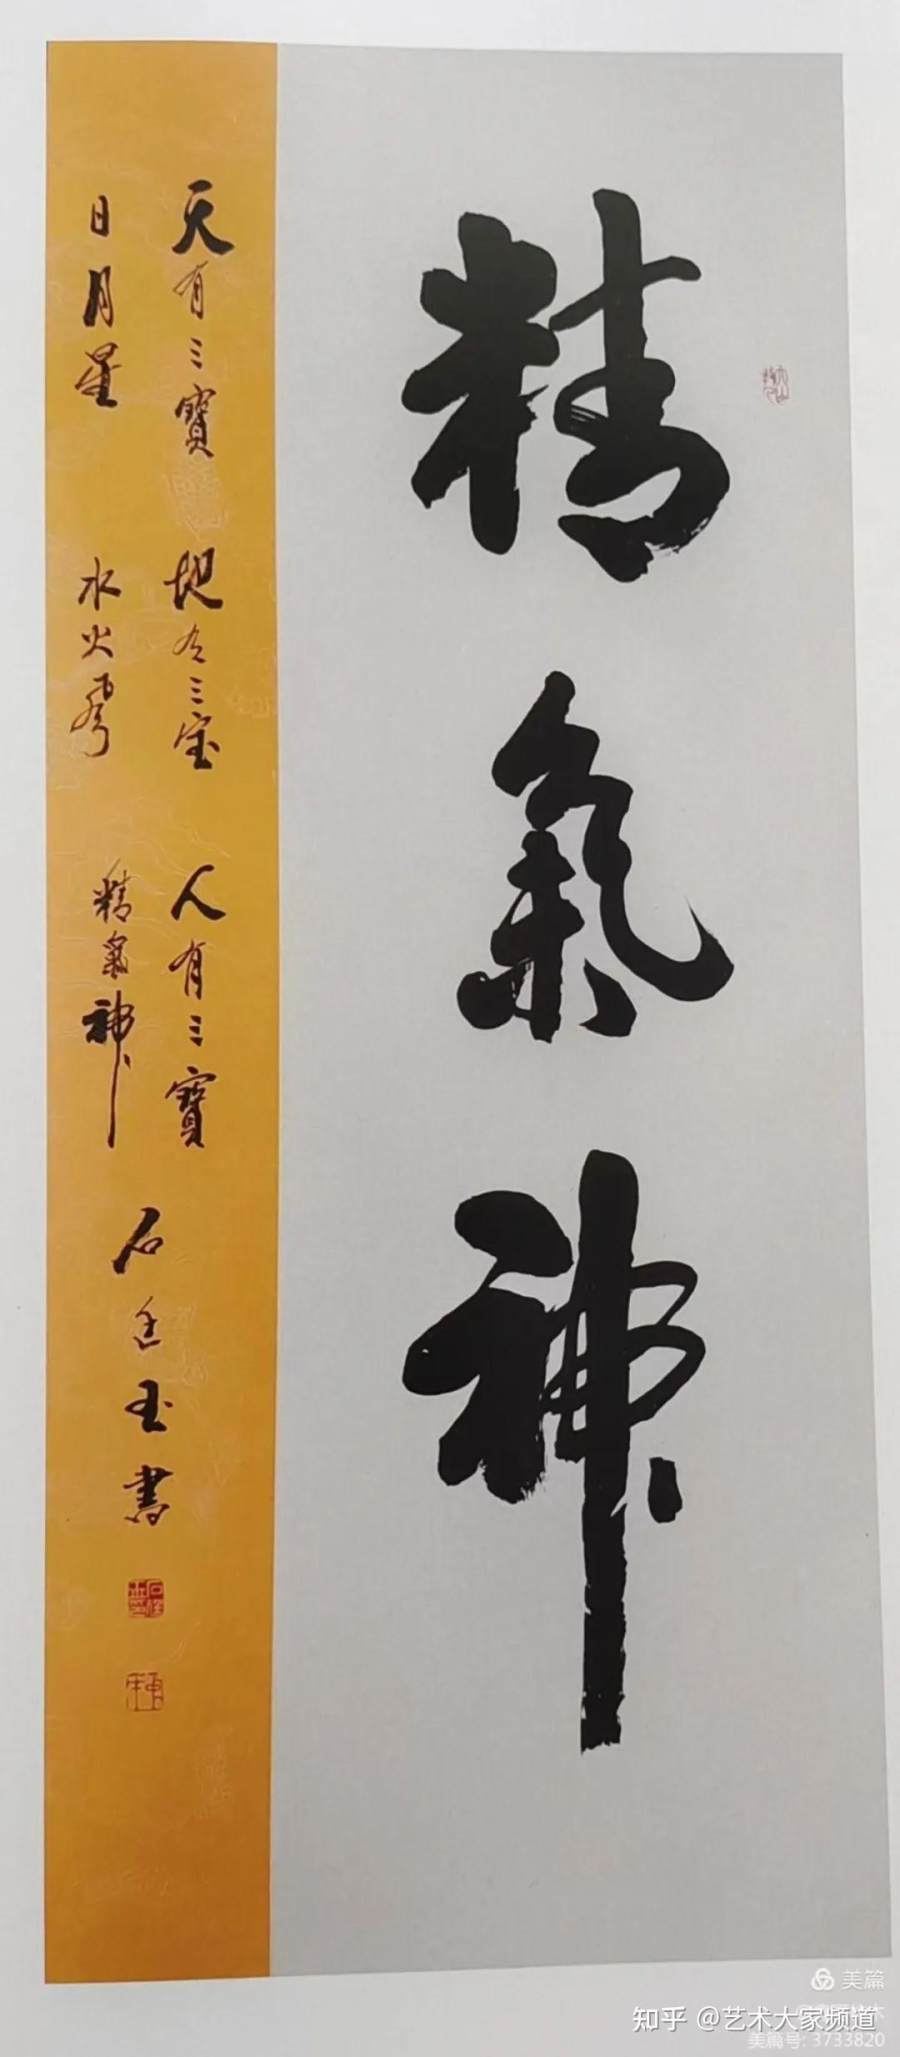 精氣神
天有三寶 地有三宝 人有三寶
日月星 水火 精氣神
石 玉書
美篇
知乎 @艺术大家频道
美篇号: 3733820